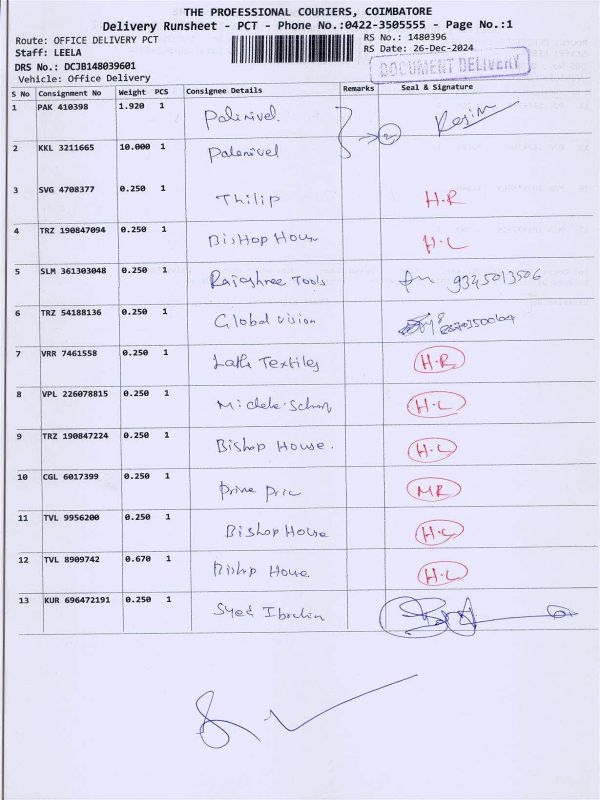 THE PROFESSIONAL COURIERS, COIMBATORE
Delivery Runsheet - PCT - Phone No.:0422-3505555 - Page No.:1
Route: OFFICE DELIVERY PCT
RS No.: 1480396
Staff: LEELA
RS Date: 26-Dec-2024
DRS No.: DCJB148039601
DOCUMENT DELIVERY
Vehicle: Office Delivery
S No Consignment No Weight PCS Consignee Details Remarks Seal & Signature
1 PAK 410398 1.920 1 Palenivel
2 KKL 3211665 10.000 1 Palenivel
3 SVG 4708377 0.250 1 Thilip H.R
4 TRZ 190847094 0.250 1 Bishop House H.L
5 SLM 361303048 0.250 1 Rajashree Tools 9345013506
6 TRZ 54188136 0.250 1 Global vision
7 VRR 7461558 0.250 1 Textiles H.R
8 VPL 226078815 0.250 1 H.L
9 TRZ 190847224 0.250 1 Bishop House. H.L
10 CGL 6017399 0.250 1 MR
11 TVL 9956200 0.250 1 Bishop House H.L
12 TVL 8909742 0.670 1 Bishop House H.L
13 KUR 696472191 0.250 1 Syed